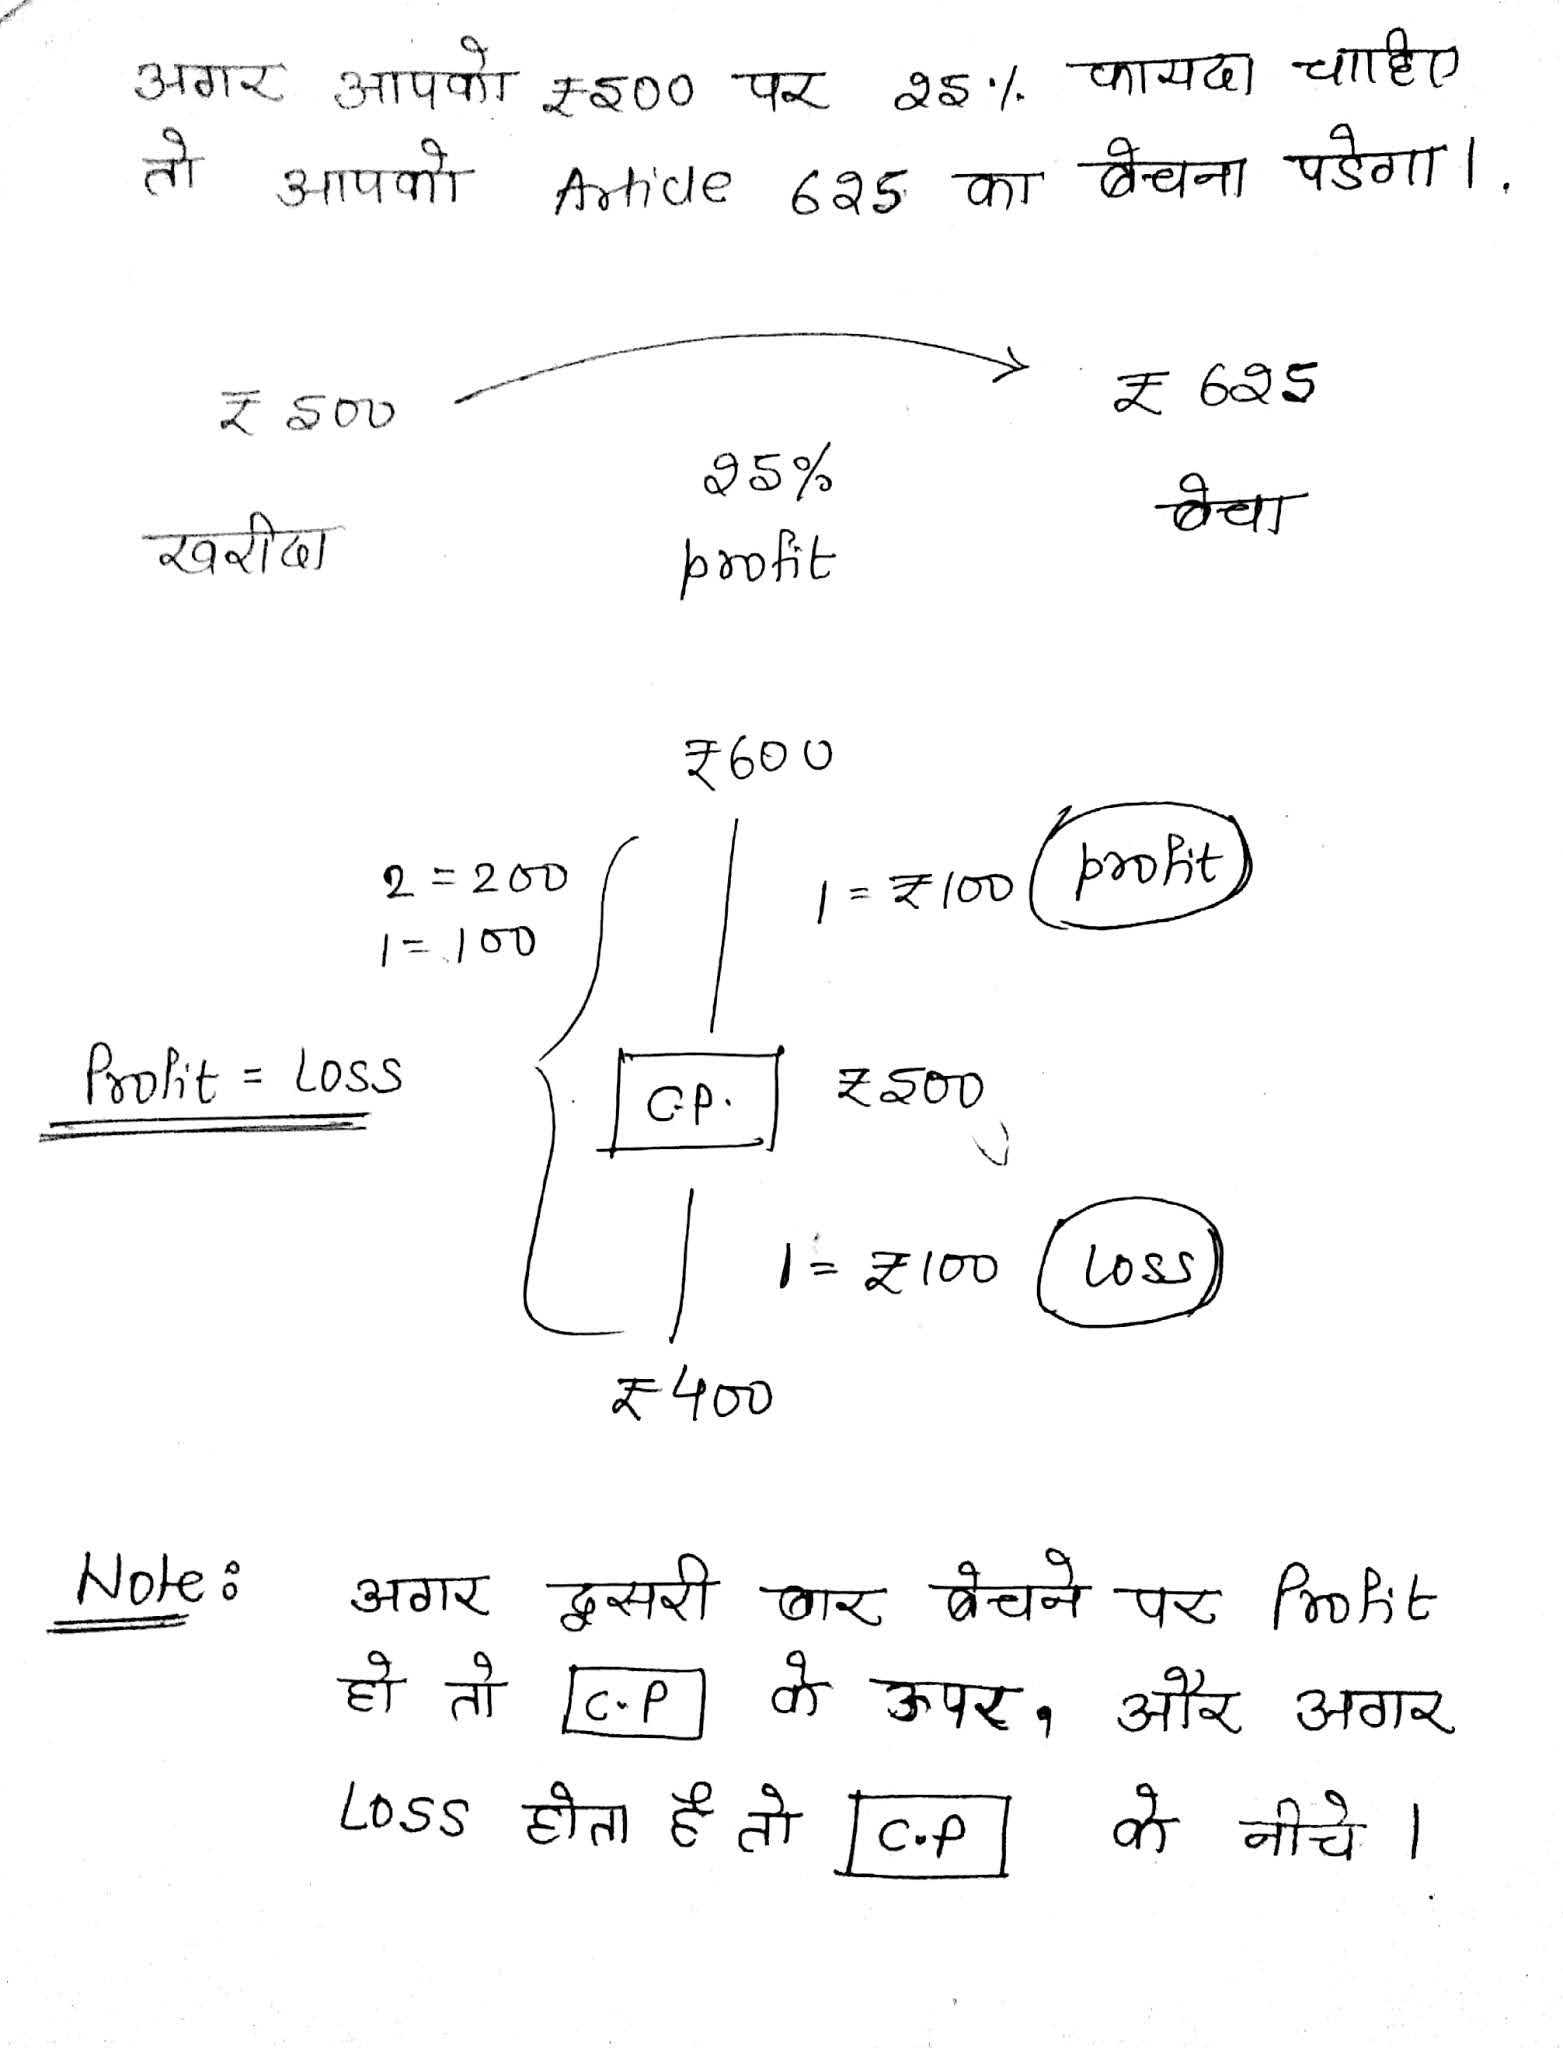 अगर आपको ₹500 पर 25% फायदा चाहिए
तो आपको Article 625 का बेचना पडेगा।
₹ 500
₹ 625
25%
profit
खरीदा
बेचा
₹600
2 = 200
1 = 100
1 = ₹100 profit
Profit = Loss
C.P.
₹500
1 = ₹100 Loss
₹400
Note: अगर दुसरी बार बेचने पर Profit
हो तो C.P के ऊपर, और अगर
Loss होता है तो C.P के नीचे।